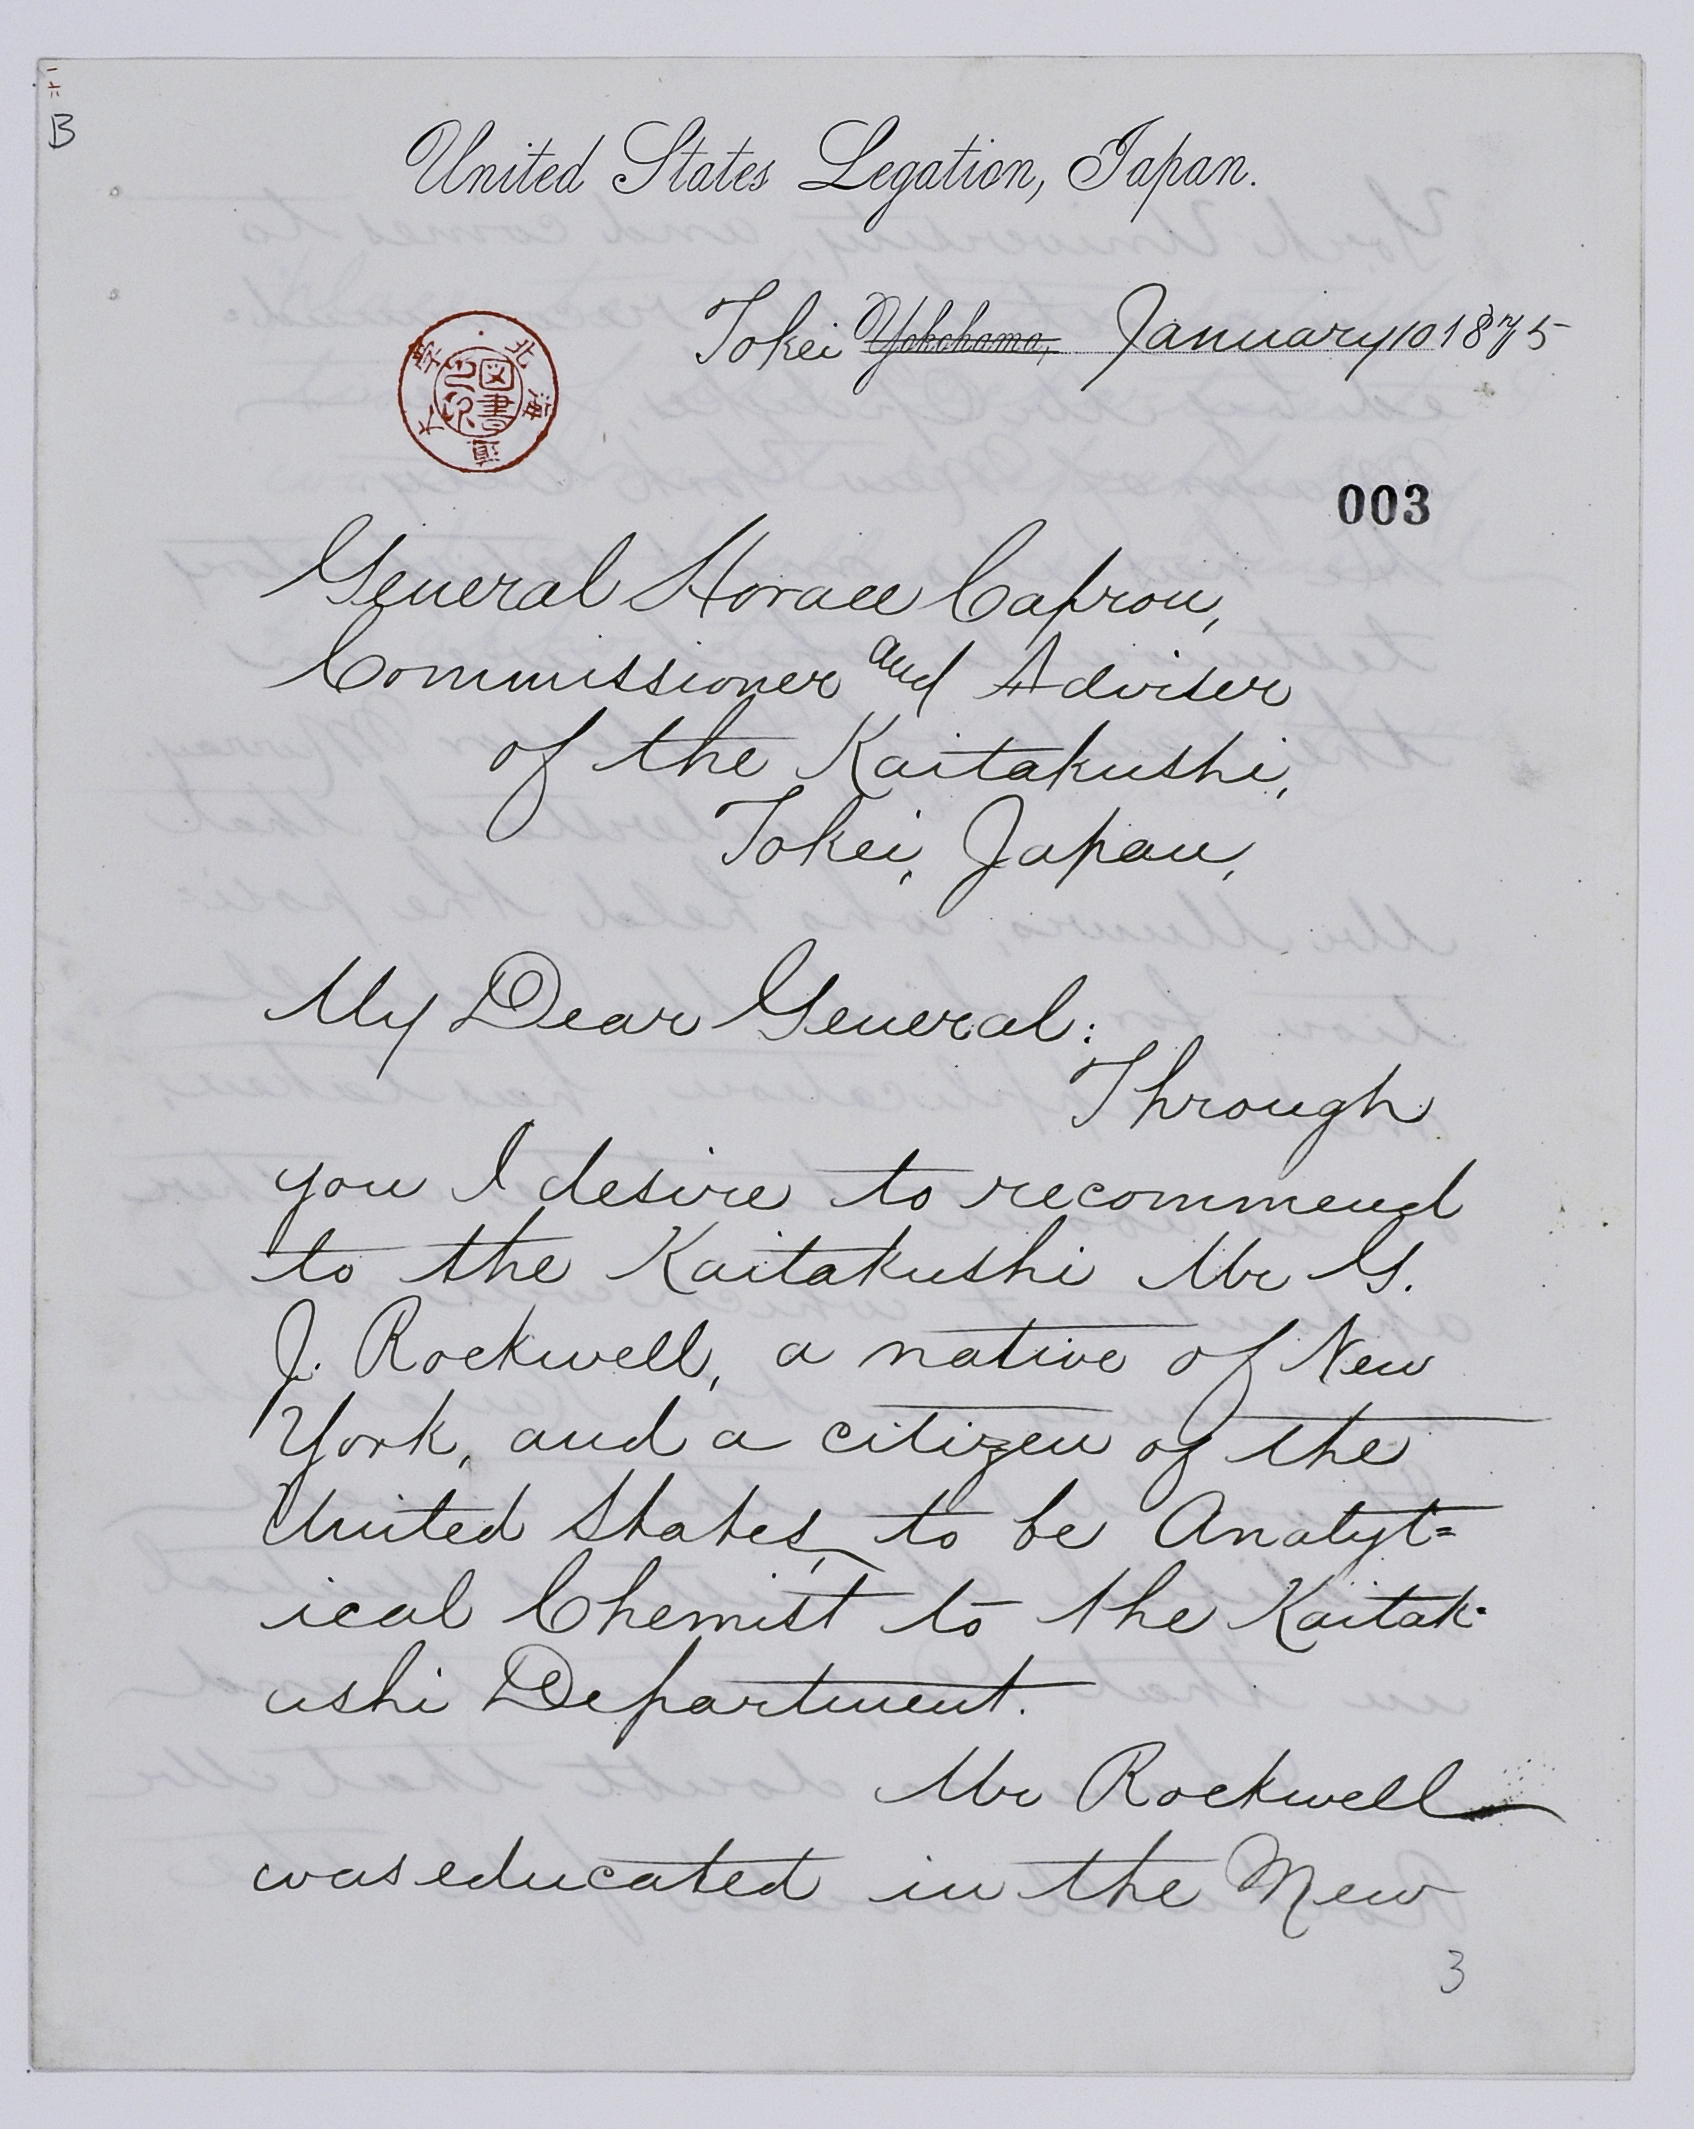 B
United States Legation, Japan.
Tokei Yokohama, January 10 1875
北海道大學
図書之印
003
General Horace Capron,
Commissioner and Adviser
of the Kaitakushi,
Tokei, Japan,
My Dear General:
Through
you I desire to recommend
to the Kaitakushi Mr G.
J. Rockwell, a native of New
York, and a citizen of the
United States, to be Analyt=
ical Chemist to the Kaitak-
ushi Department.
Mr Rockwell
was educated in the New
3